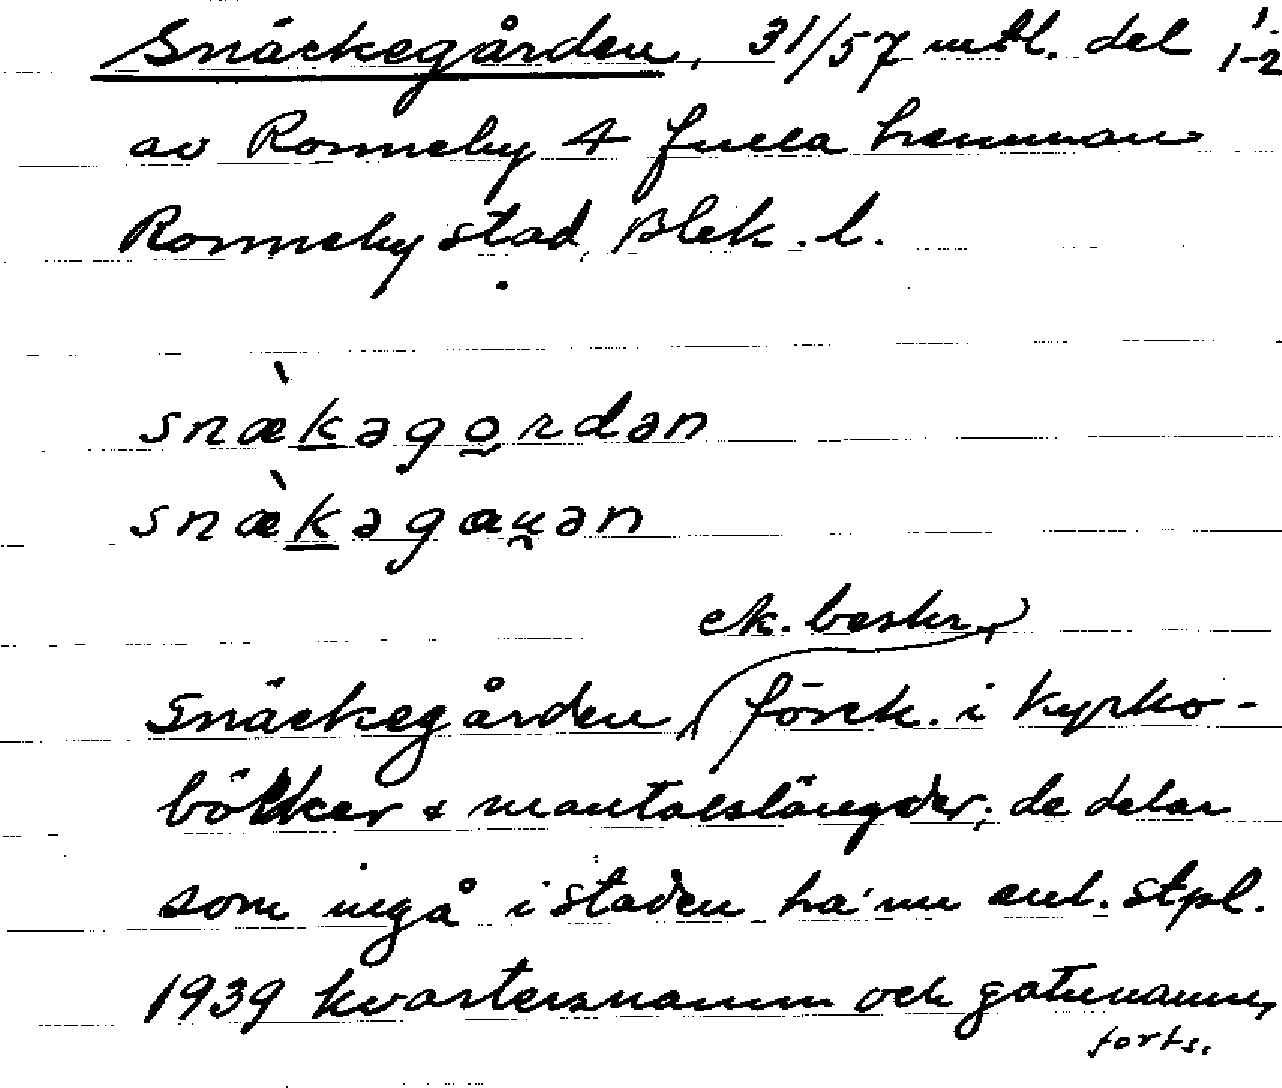 Snäckegården, 31/57 mtl. del 1-2
av Ronneby 4 fulla hemman
Ronneby stad, Blek. l.
snækəgo̰rdən
snækəgaṵən
ek. beskr.,
Snäckegården, förek. i kyrko-
böcker & mantalslängder; de delar
som ingå i staden ha nu enl. stpl.
1939 kvartersnamn och gatunamn,
forts.